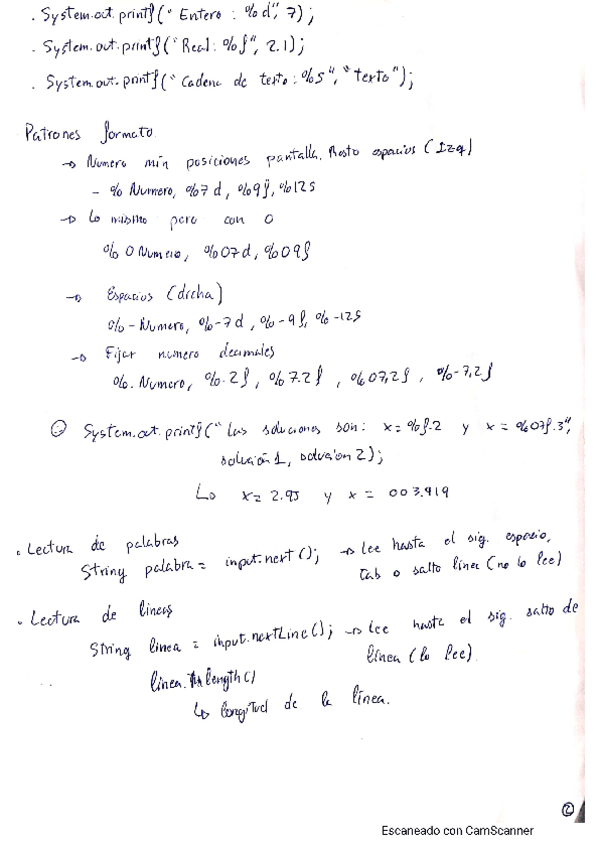 . System.out.printf("Entero : %d", 7);
. System.out.printf("Real: %f", 2.1);
. System.out.printf("Cadena de texto: %s", "texto");
Patrones formato
→ Numero min posiciones pantalla. Resto espacios (Izq)
- % Numero, %7d, %9f, %12s
→ Lo mismo pero con 0
% 0 Numero, %07d, %09f
→ Espacios (drcha)
% - Numero, %-7d, %-9f, %-12s
→ Fijar numero decimales
%. Numero, %.2f, %7.2f, %07,2f, %-7,2f
System.out.printf("Las soluciones son: x=%f.2 y x = %07f.3",
solución1, solucion2);
↳ x= 2.95 y x = 003.919
. Lectura de palabras
String palabra = input.next(); → Lee hasta el sig. espacio,
tab o salto linea (no lo lee)
. Lectura de lineas
String linea = input.nextLine(); → Lee hasta el sig. salto de
linea (lo lee).
linea.length()
↳ longitud de la línea.
2
Escaneado con CamScanner